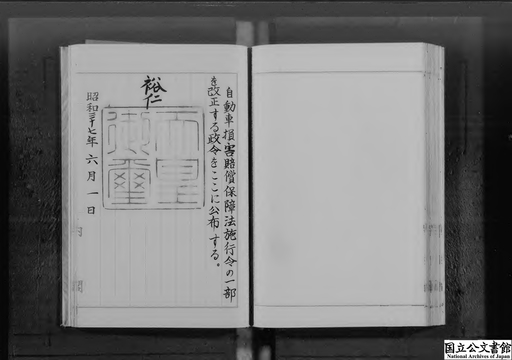 自動車損害賠償保障法施行令の一部
を改正する政令をここに公布する。
裕仁
天皇
御璽
昭和三十七年六月一日
国立公文書館
National Archives of Japan